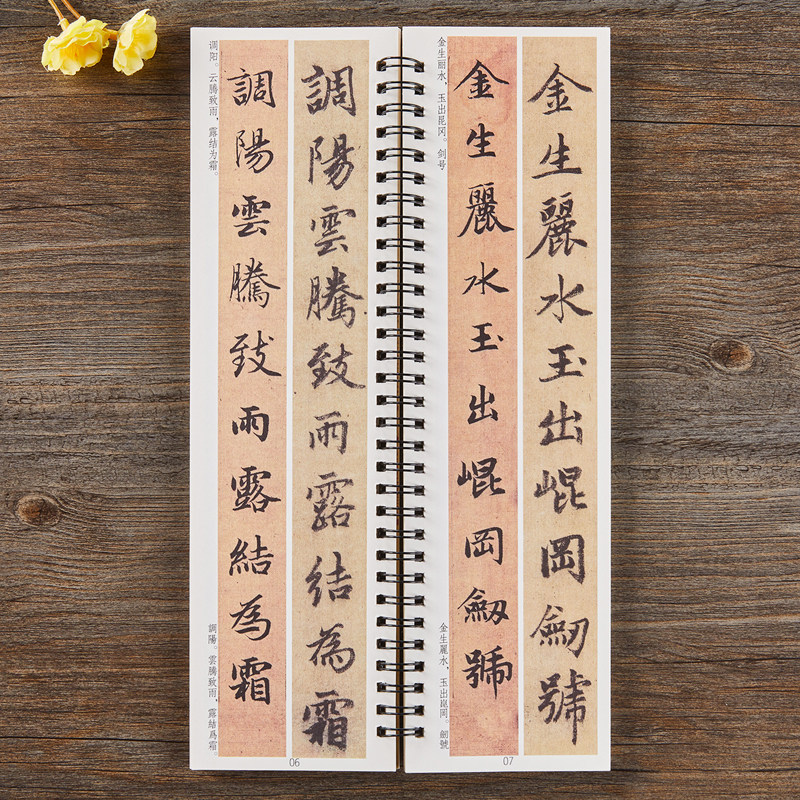 调阳。云腾致雨，露结为霜。
調陽。雲騰致雨，露結爲霜。
調陽雲騰致雨露結為霜
調陽雲騰致雨露結為霜
06
金生丽水，玉出昆冈。剑号
金生麗水，玉出崑岡。劒號
金生麗水玉出崐岡劒號
金生麗水玉出崐岡劒號
07